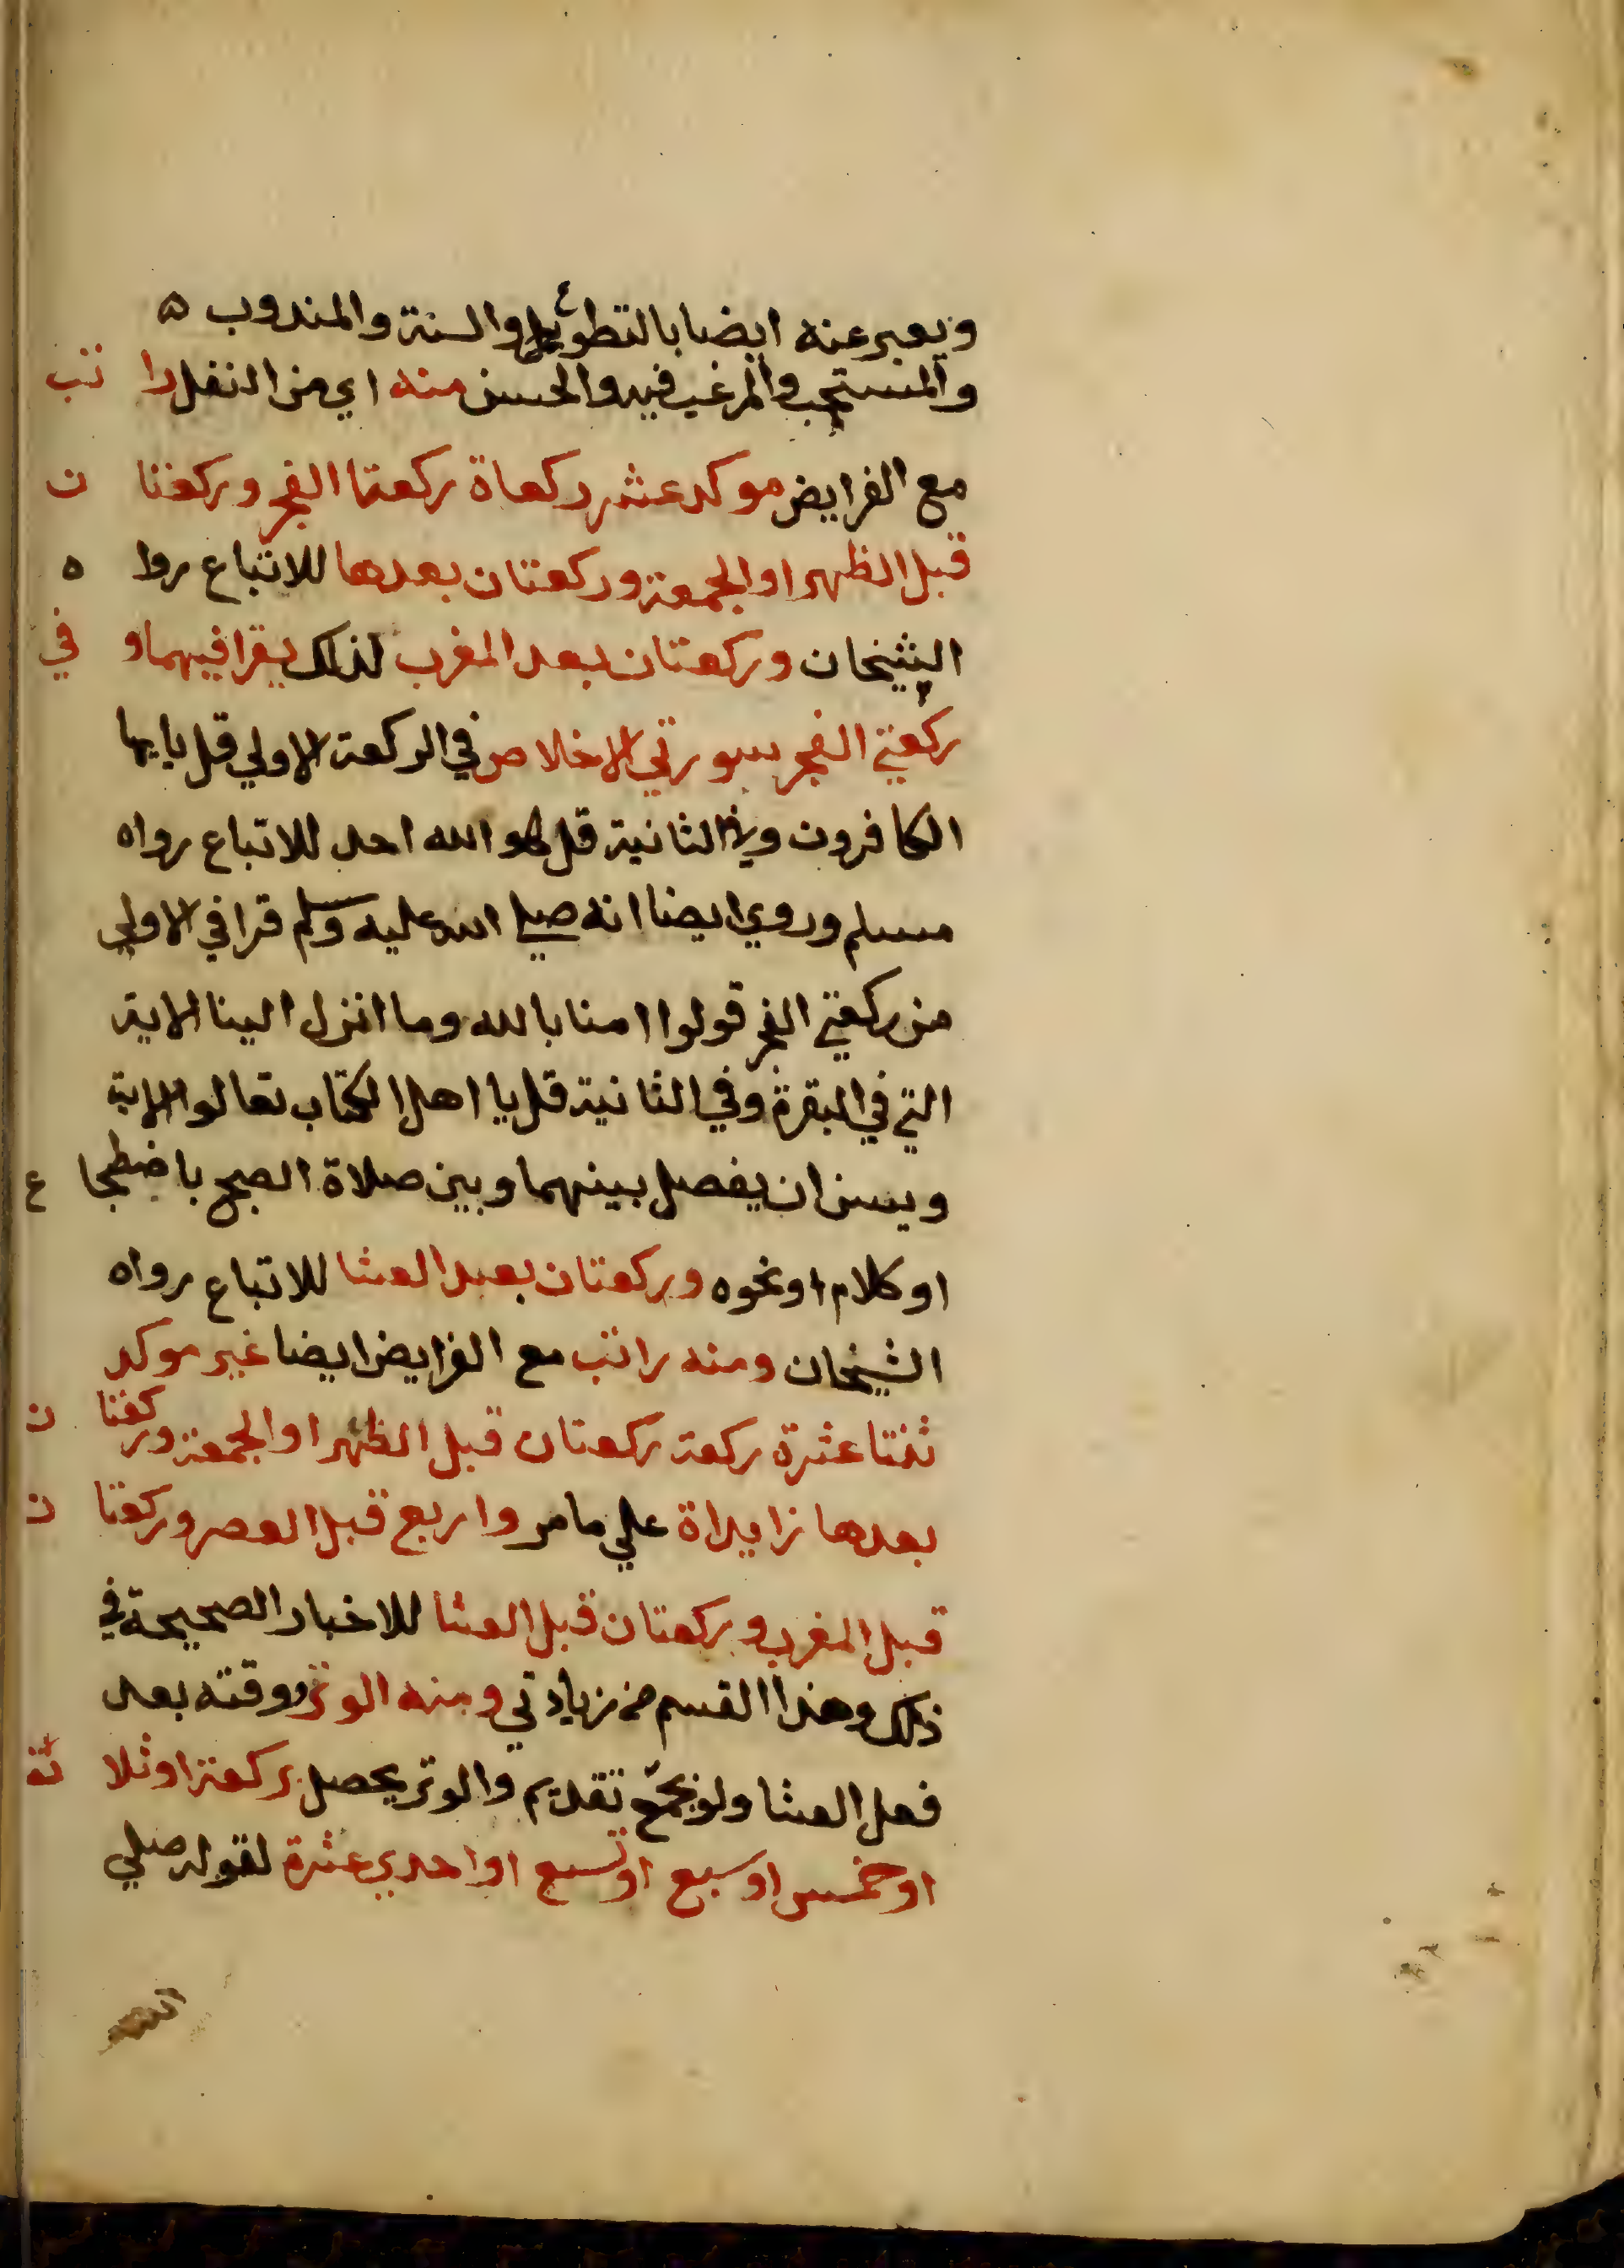 ويعبر عنه ايضا بالتطوع والسنة والمندوب ه
والمستحب والمرغب فيه والحسن منه اي من النفل را تب
مع الفرايض موكد عشر ركعاة ركعتا الفجر وركعتا ن
قبل الظهر او الجمعة وركعتان بعدها للاتباع روا ه
الشيخان وركعتان بعد المغرب لذلك يقرا فيهما و في
ركعتي الفجر بسورتي الاخلاص في الركعة الاولي قل يايها
الكافرون وفي الثانية قل هو الله احد للاتباع رواه
مسلم وروي ايضا انه صلي الله عليه وسلم قرا في الاولي
من ركعتي الفجر قولوا امنا بالله وما انزل الينا الاية
التي في البقرة وفي الثانية قل يا اهل الكتاب تعالوا الاية
ويسن ان يفصل بينهما وبين صلاة الصبح باضطجا ع
او كلام او نحوه وركعتان بعد العشا للاتباع رواه
الشيخان ومنه راتب مع الفرايض ايضا غير موكد
ثنتا عشرة ركعة ركعتان قبل الظهر او الجمعة وركعتا ن
بعدها زايداة علي ما مر واربع قبل العصر وركعتا ن
قبل المغرب وركعتان قبل العشا للاخبار الصحيحة في
ذلك وهذا القسم من زيادتي ومنه الوتر ووقته بعد
فعل العشا ولو بجمع تقديم والوتر يحصل بركعة او ثلا ثة
او خمس او سبع او تسع او احدي عشرة لقوله صلي